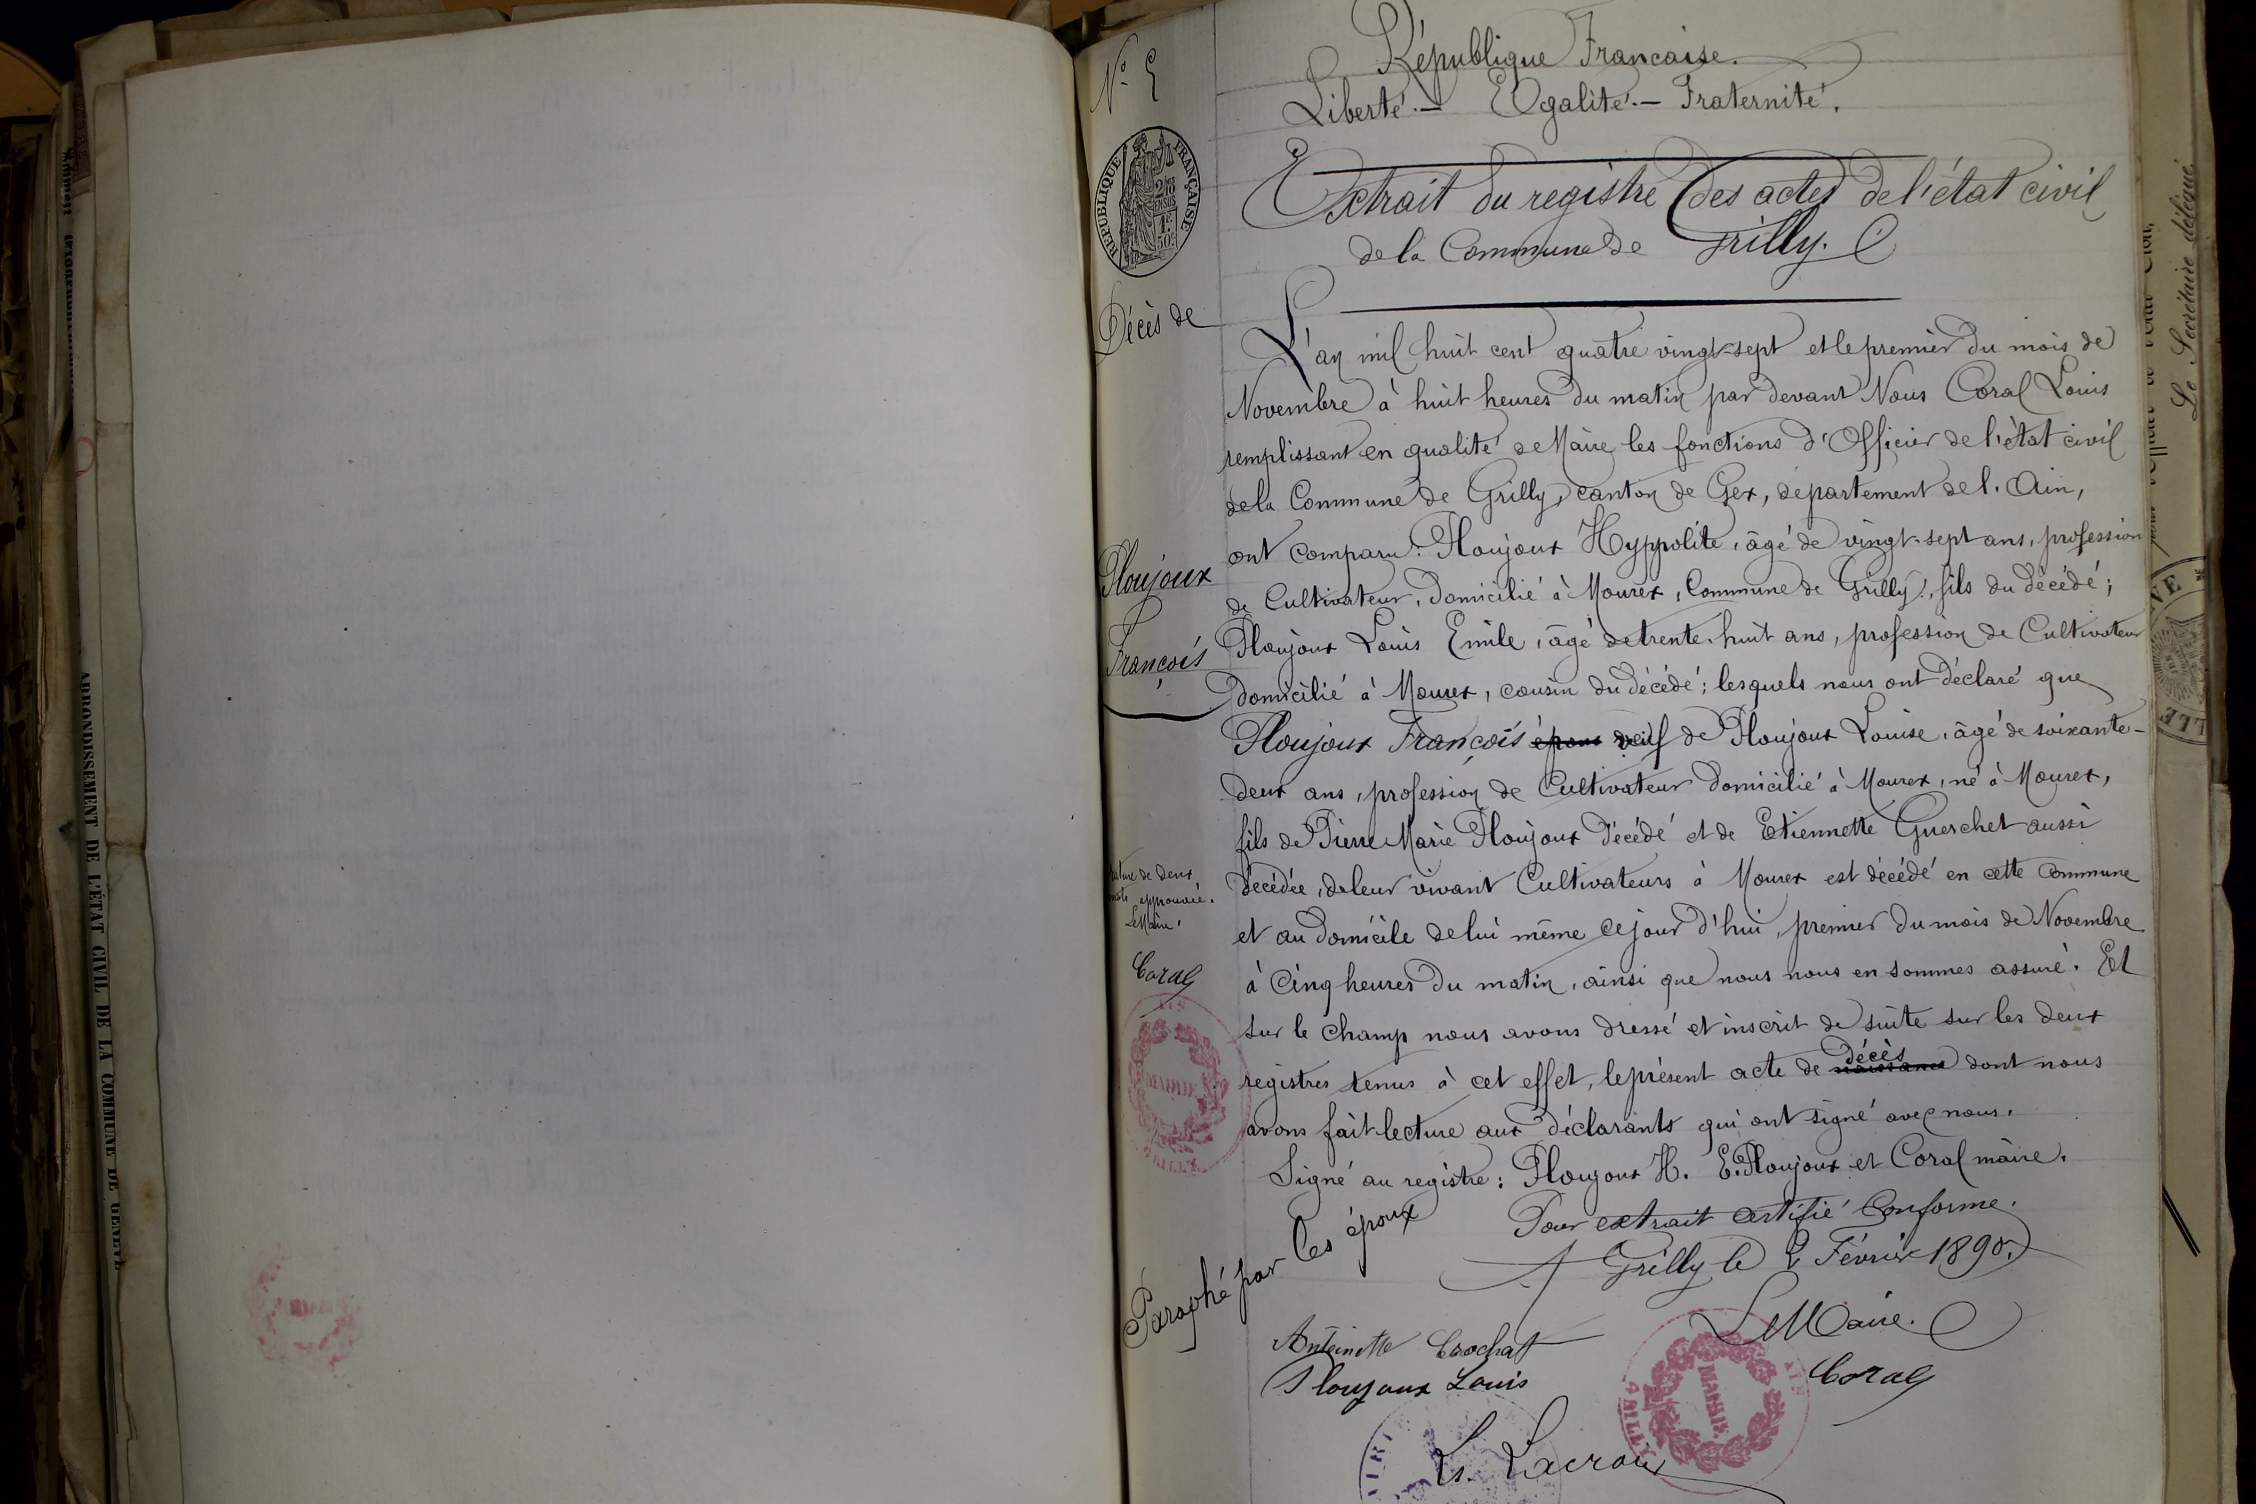 ARRONDISSEMENT DE L'ÉTAT CIVIL DE LA COMMUNE DE GENÈVE
Nº 5
RÉPUBLIQUE FRANÇAISE
2/10
EN SUS
1F
50C
Décès de
Ploujoux
François
Rature de deux
mots approuvée.
Le Maire,
Coral
République Francaise.
Liberté. — Egalité. — Fraternité.
Extrait du registre des actes de l'état civil
de la Commune de Grilly.
L'an mil huit cent quatre vingt-sept et le premier du mois de
Novembre à huit heures du matin par devant Nous Coral Louis
remplissant en qualité de Maire les fonctions d'Officier de l'état civil
de la Commune de Grilly, canton de Gex, département de l'Ain,
ont comparu: Ploujoux Hyppolite, âgé de vingt-sept ans, profession
de Cultivateur, domicilié à Mourex, Commune de Grilly, fils du décédé;
Ploujoux Louis Emile, âgé de trente-huit ans, profession de Cultivateur
domicilié à Mourex, cousin du décédé; lesquels nous ont déclaré que
Ploujoux François époux veuf de Ploujoux Louise, âgé de soixante-
deux ans, profession de Cultivateur domicilié à Mourex, né à Mourex,
fils de Pierre Marie Ploujoux décédé et de Etiennette Guerchet aussi
décédée, de leur vivant Cultivateurs à Mourex est décédé en cette Commune
et au domicile de lui même ce jour d'hui, premier du mois de Novembre
à Cinq heures du matin, ainsi que nous nous en sommes assuré. Et
sur le champ nous avons dressé et inscrit de suite sur les deux
registres tenus à cet effet, le présent acte de naissance décès dont nous
avons fait lecture aux déclarants qui ont signé avec nous.
Signé au registre: Ploujoux H. Ele Ploujoux et Coral maire.
Pour extrait certifié Conforme.
Grilly le 2 Février 1890.
Le Maire.
Coral
Paraphé par les époux
Antoinette Crochat
Ploujoux Louis
Ls. Lacroix
MAIRIE
GRILLY
AIN
Le Secrétaire délégué